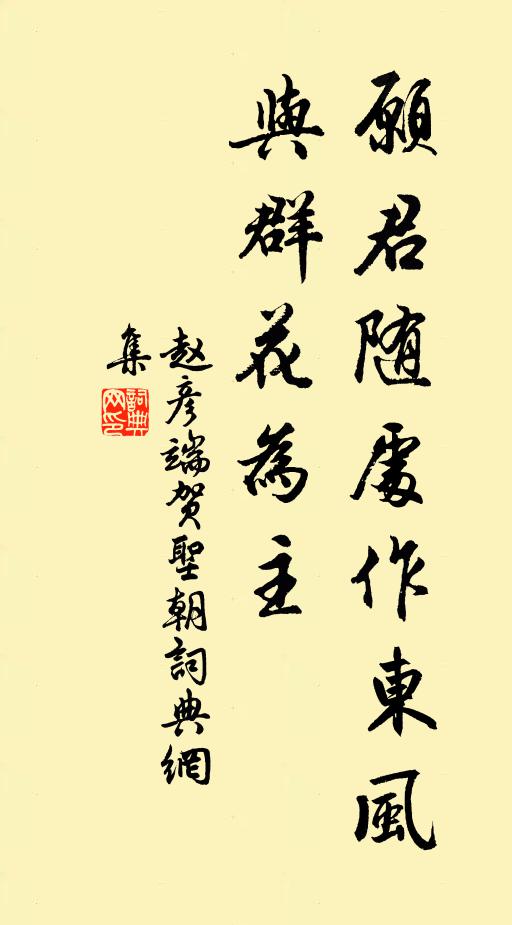 願君随處作東風
與群花為主
赵彦端贺聖朝詞典網
集
詞典
网印